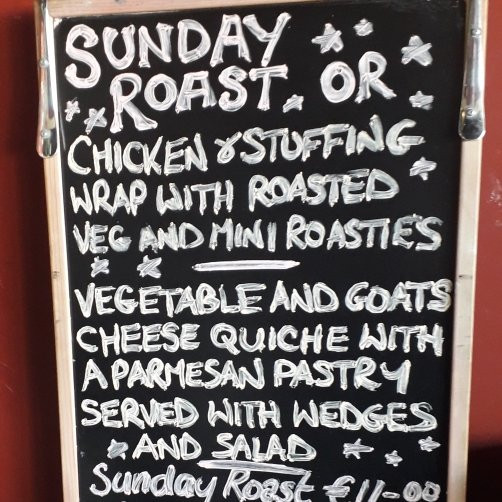 SUNDAY
ROAST OR
CHICKEN & STUFFING
WRAP WITH ROASTED
VEG AND MINI ROASTIES
VEGETABLE AND GOATS
CHEESE QUICHE WITH
A PARMESAN PASTRY
SERVED WITH WEDGES
AND SALAD
Sunday Roast £11-00